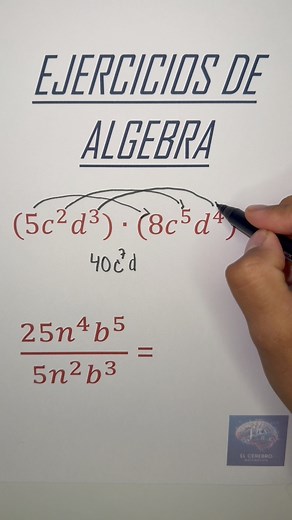 EJERCICIOS DE
ALGEBRA
(5c²d³) · (8c⁵d⁴)
40c⁷d
25n⁴b⁵
5n²b³
=
EL CEREBRO